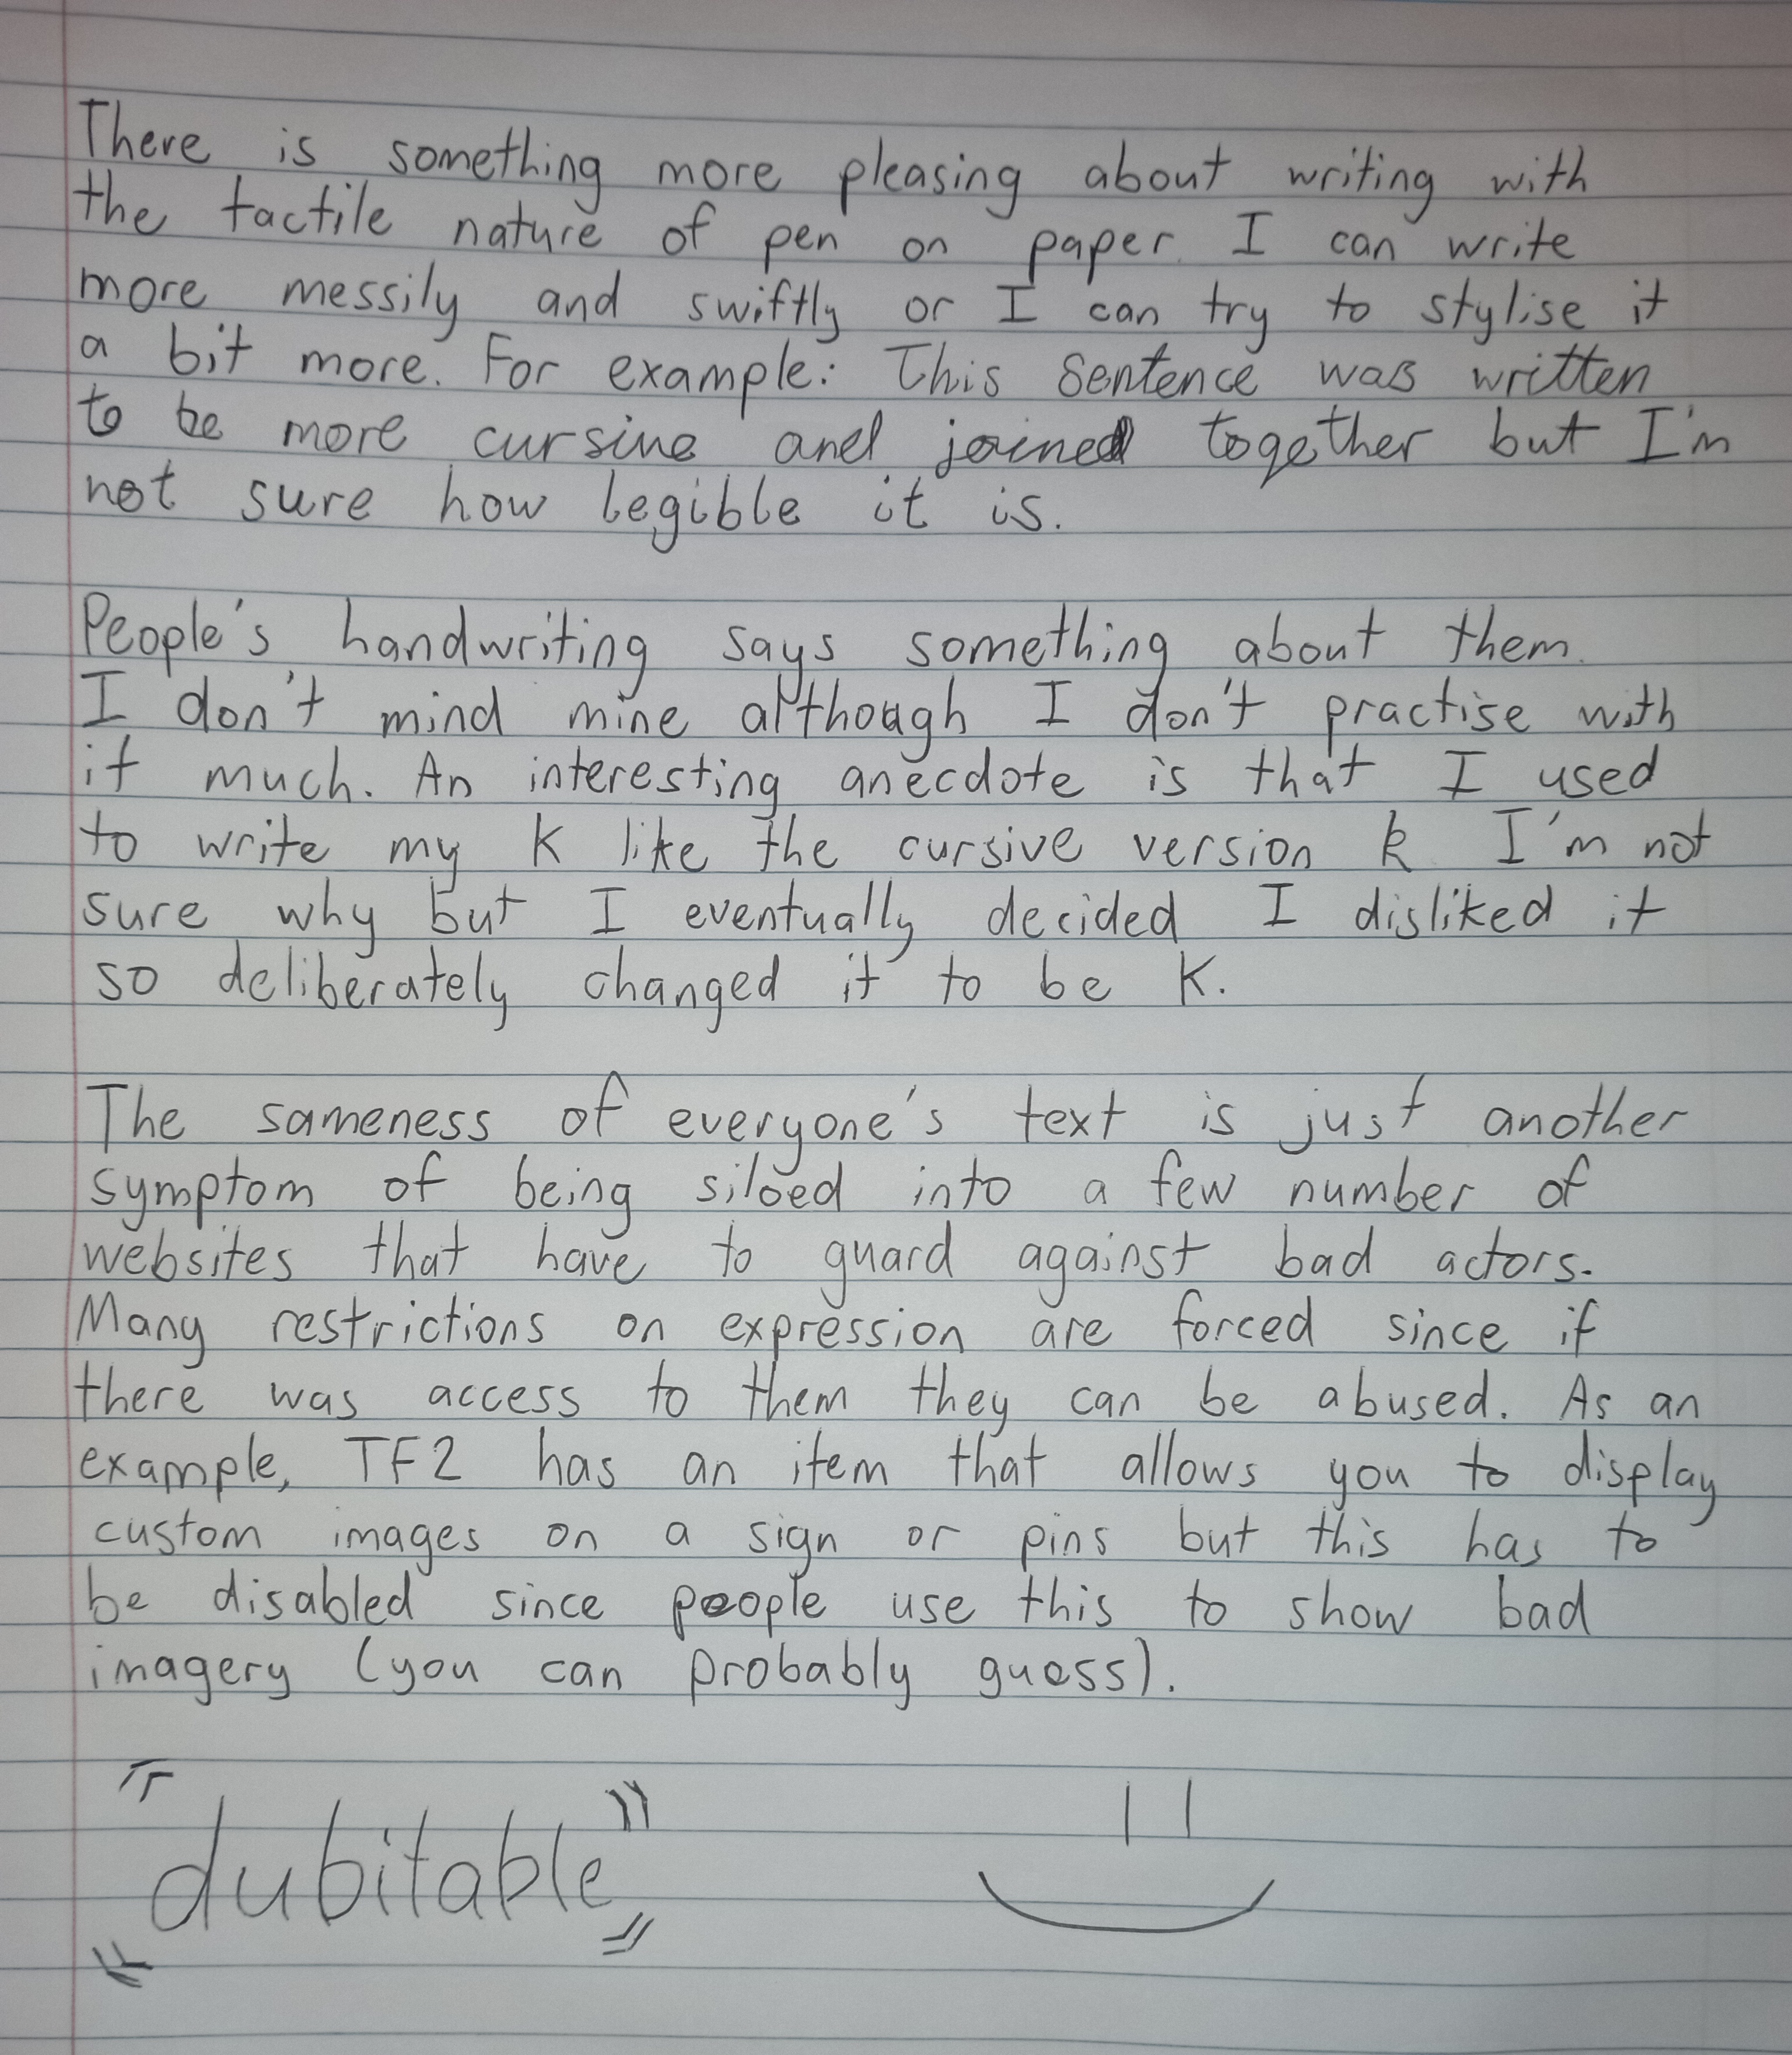 There is something more pleasing about writing with
the tactile nature of pen on paper. I can write
more messily and swiftly or I can try to stylise it
a bit more. For example: This sentence was written
to be more cursive and joined together but I'm
not sure how legible it is.
People's handwriting says something about them.
I don't mind mine although I don't practise with
it much. An interesting anecdote is that I used
to write my K like the cursive version k. I'm not
sure why but I eventually decided I disliked it
so deliberately changed it to be K.
The sameness of everyone's text is just another
symptom of being siloed into a few number of
websites that have to guard against bad actors.
Many restrictions on expression are forced since if
there was access to them they can be abused. As an
example, TF2 has an item that allows you to display
custom images on a sign or pins but this has to
be disabled since people use this to show bad
imagery (you can probably guess).
dubitable